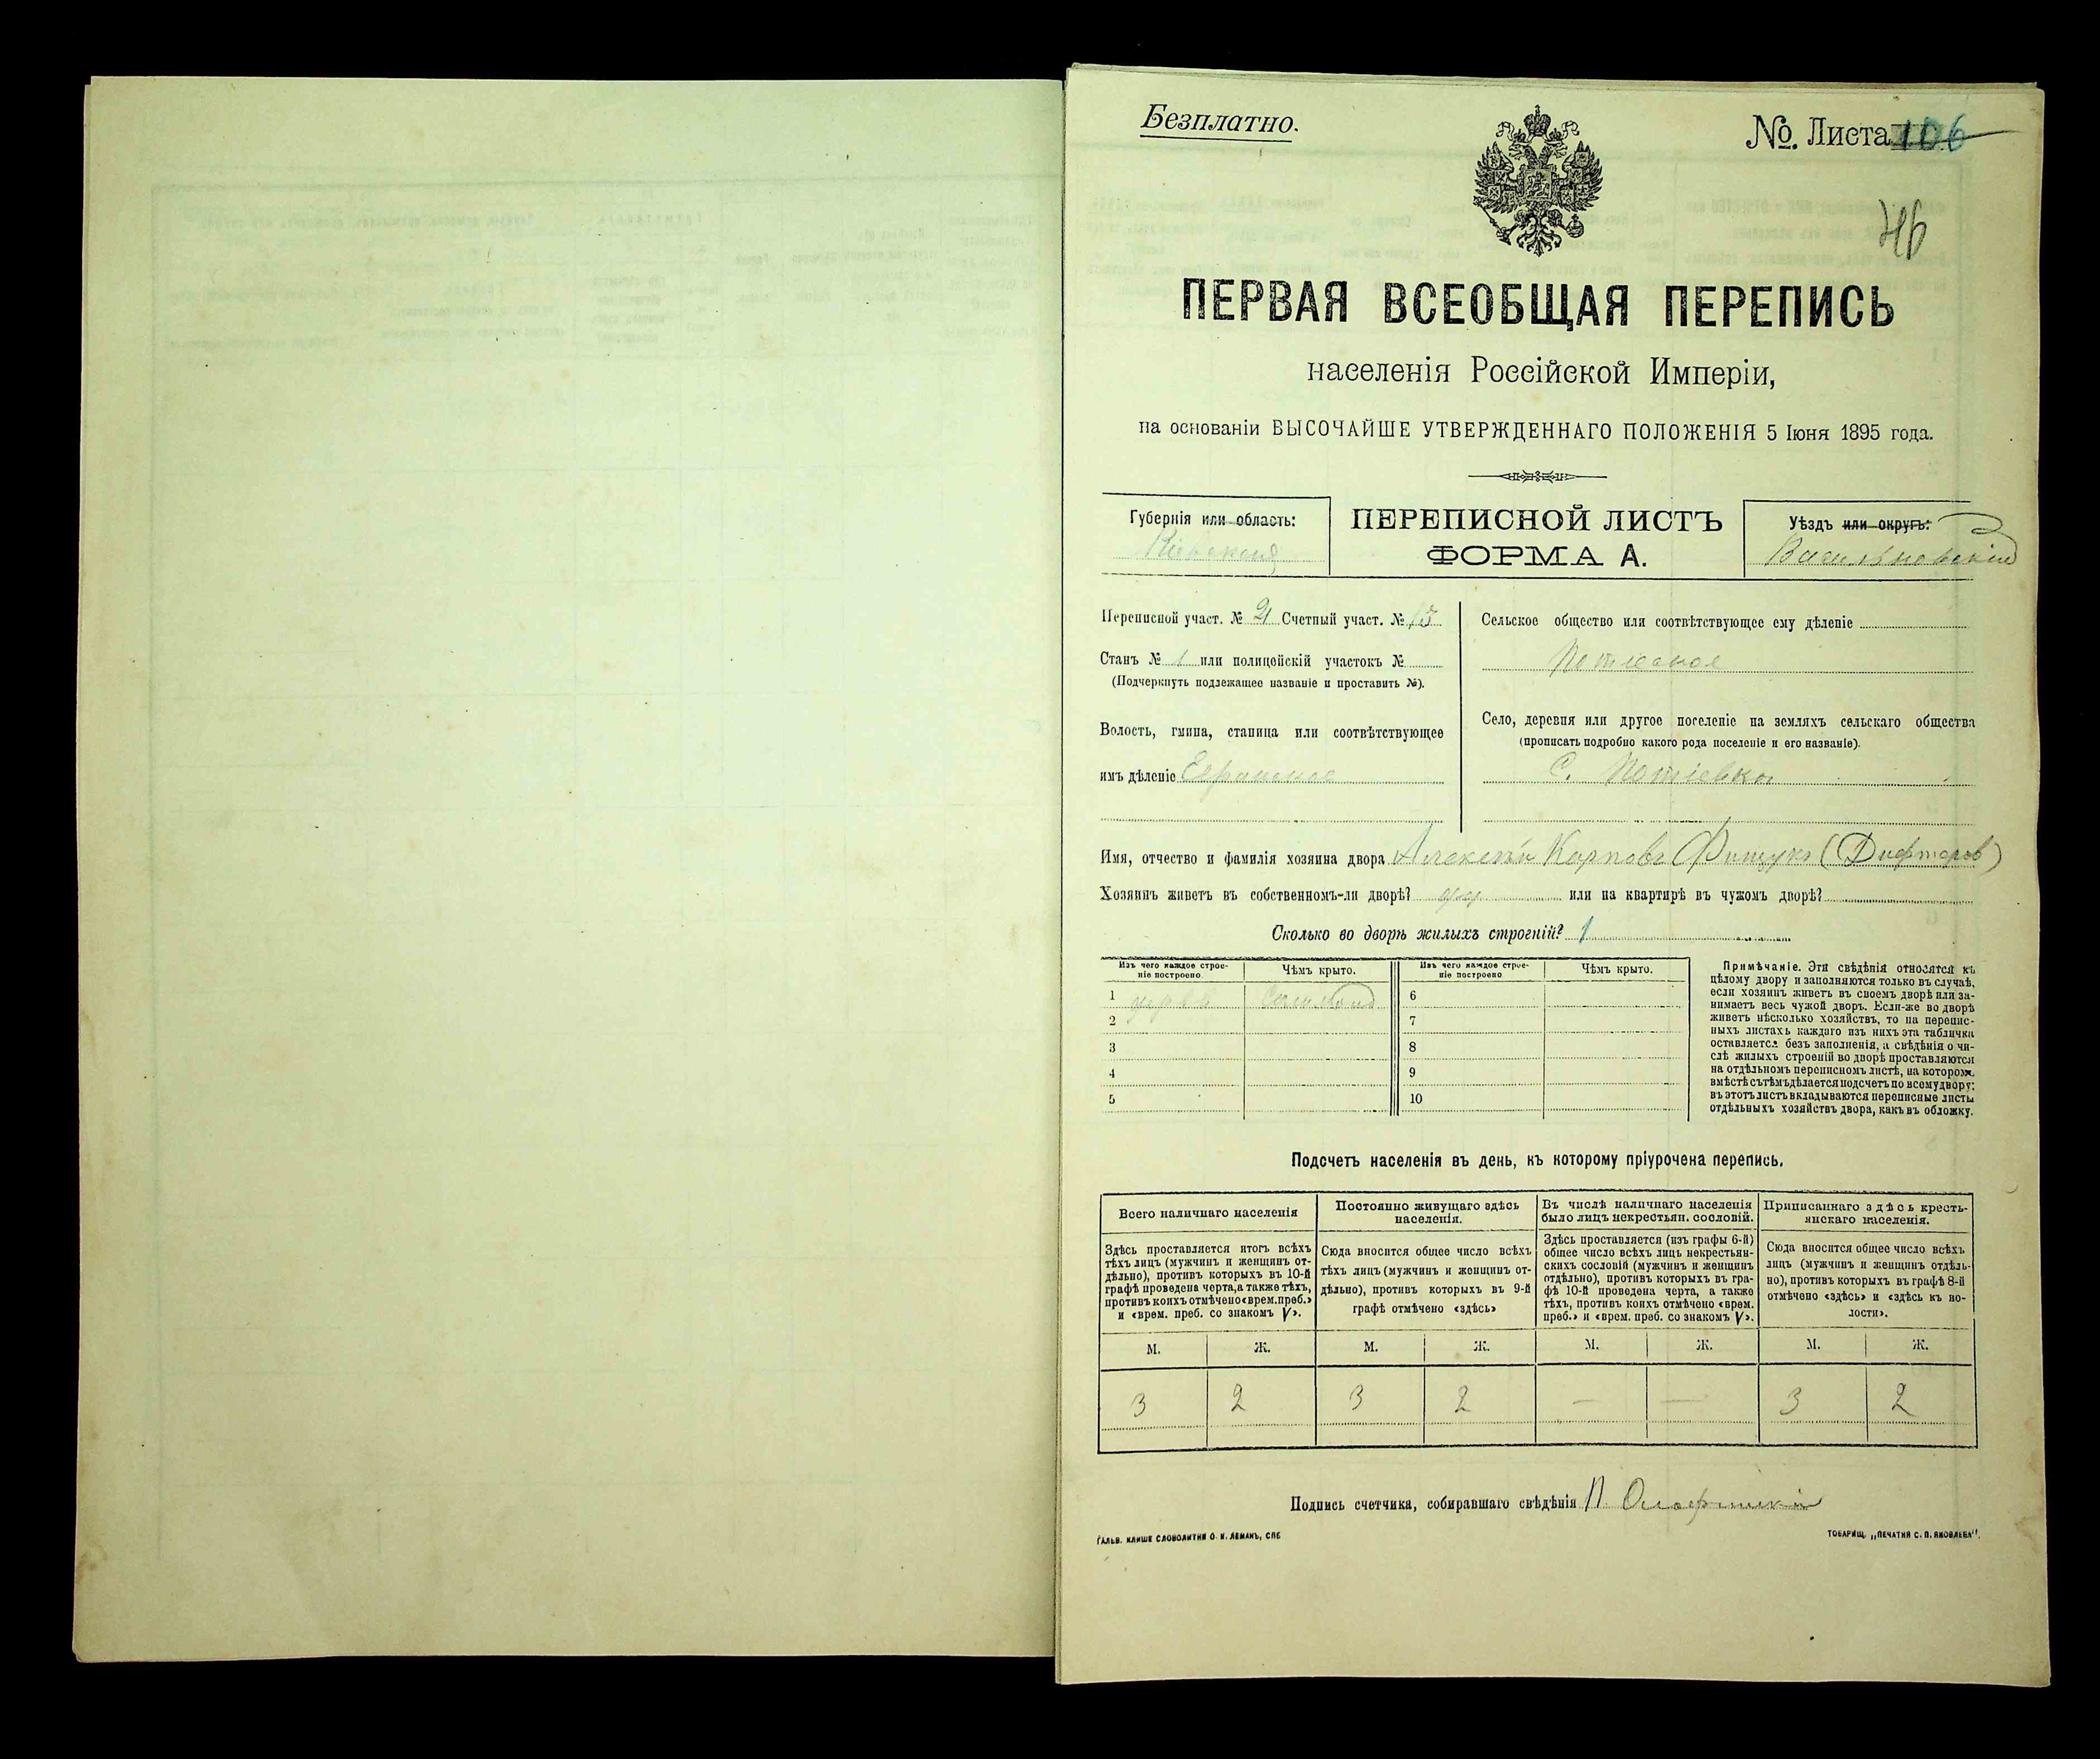 Безплатно.
№. Листа 106
ПЕРВАЯ ВСЕОБЩАЯ ПЕРЕПИСЬ
населенія Россійской Имперіи,
на основаніи ВЫСОЧАЙШЕ УТВЕРЖДЕННАГО ПОЛОЖЕНІЯ 5 Іюня 1895 года.
Губернія или область:
Кіевская
ПЕРЕПИСНОЙ ЛИСТЪ
ФОРМА А.
Уѣздъ или округъ:
Васильковскій
Переписной участ. № 21 Счетный участ. № 13
Станъ № 1 или полицейскій участокъ №
(Подчеркнуть подлежащее названіе и проставить №).
Волость, гмина, станица или соотвѣтствующее
имъ дѣленіе
Сельское общество или соотвѣтствующее ему дѣленіе
Потіевское
Село, деревня или другое поселеніе на земляхъ сельскаго общества
(прописать подробно какого рода поселеніе и его названіе).
С. Потіевка
Имя, отчество и фамилія хозяина двора Алексѣй Карповъ Фищукъ (Дифтеров)
Хозяинъ живетъ въ собственномъ-ли дворѣ? или на квартирѣ въ чужомъ дворѣ?
Сколько во дворѣ жилыхъ строеній? 1
Изъ чего каждое строе-
ніе построено
Чѣмъ крыто.
Изъ чего каждое строе-
ніе построено
Чѣмъ крыто.
1 дерева Соломой
2
3
4
5
6
7
8
9
10
Примѣчаніе. Эти свѣдѣнія относятся къ
цѣлому двору и заполняются только въ случаѣ,
если хозяинъ живетъ въ своемъ дворѣ или за-
нимаетъ весь чужой дворъ. Если-же во дворѣ
живетъ нѣсколько хозяйствъ, то на перепис-
ныхъ листахъ каждаго изъ нихъ эта табличка
оставляется безъ заполненія, а свѣдѣнія о чи-
слѣ жилыхъ строеній во дворѣ проставляются
на отдѣльномъ переписномъ листѣ, на которомъ
вмѣстѣ съ тѣмъ дѣлается подсчетъ по всему двору;
въ этотъ листъ вкладываются переписные листы
отдѣльныхъ хозяйствъ двора, какъ въ обложку.
Подсчетъ населенія въ день, къ которому пріурочена перепись.
Всего наличнаго населенія
Здѣсь проставляется итогъ всѣхъ
тѣхъ лицъ (мужчинъ и женщинъ от-
дѣльно), противъ которыхъ въ 10-й
графѣ проведена черта, а также тѣхъ,
противъ коихъ отмѣчено «врем. преб.»
и «врем. преб. со знакомъ V».
Постоянно живущаго здѣсь
населенія.
Сюда вносится общее число всѣхъ
тѣхъ лицъ (мужчинъ и женщинъ от-
дѣльно), противъ которыхъ въ 9-й
графѣ отмѣчено «здѣсь»
Въ числѣ наличнаго населенія
было лицъ некрестьян. сословій.
Здѣсь проставляется (изъ графы 6-й)
общее число всѣхъ лицъ некрестьян-
скихъ сословій (мужчинъ и женщинъ
отдѣльно), противъ которыхъ въ гра-
фѣ 10-й проведена черта, а также
тѣхъ, противъ коихъ отмѣчено «врем.
преб.» и «врем. преб. со знакомъ V».
Приписаннаго здѣсь кресть-
янскаго населенія.
Сюда вносится общее число всѣхъ
лицъ (мужчинъ и женщинъ отдѣль-
но), противъ которыхъ въ графѣ 8-й
отмѣчено «здѣсь» и «здѣсь къ во-
лости».
М. Ж. М. Ж. М. Ж. М. Ж.
3 2 3 2 — — 3 2
Подпись счетчика, собиравшаго свѣдѣнія П.
ГАЛЬВ. КЛИШЕ СЛОВОЛИТНИ О. И. ЛЕМАНЪ, СПБ
ТОВАРИЩ. „ПЕЧАТНЯ С. П. ЯКОВЛЕВА".